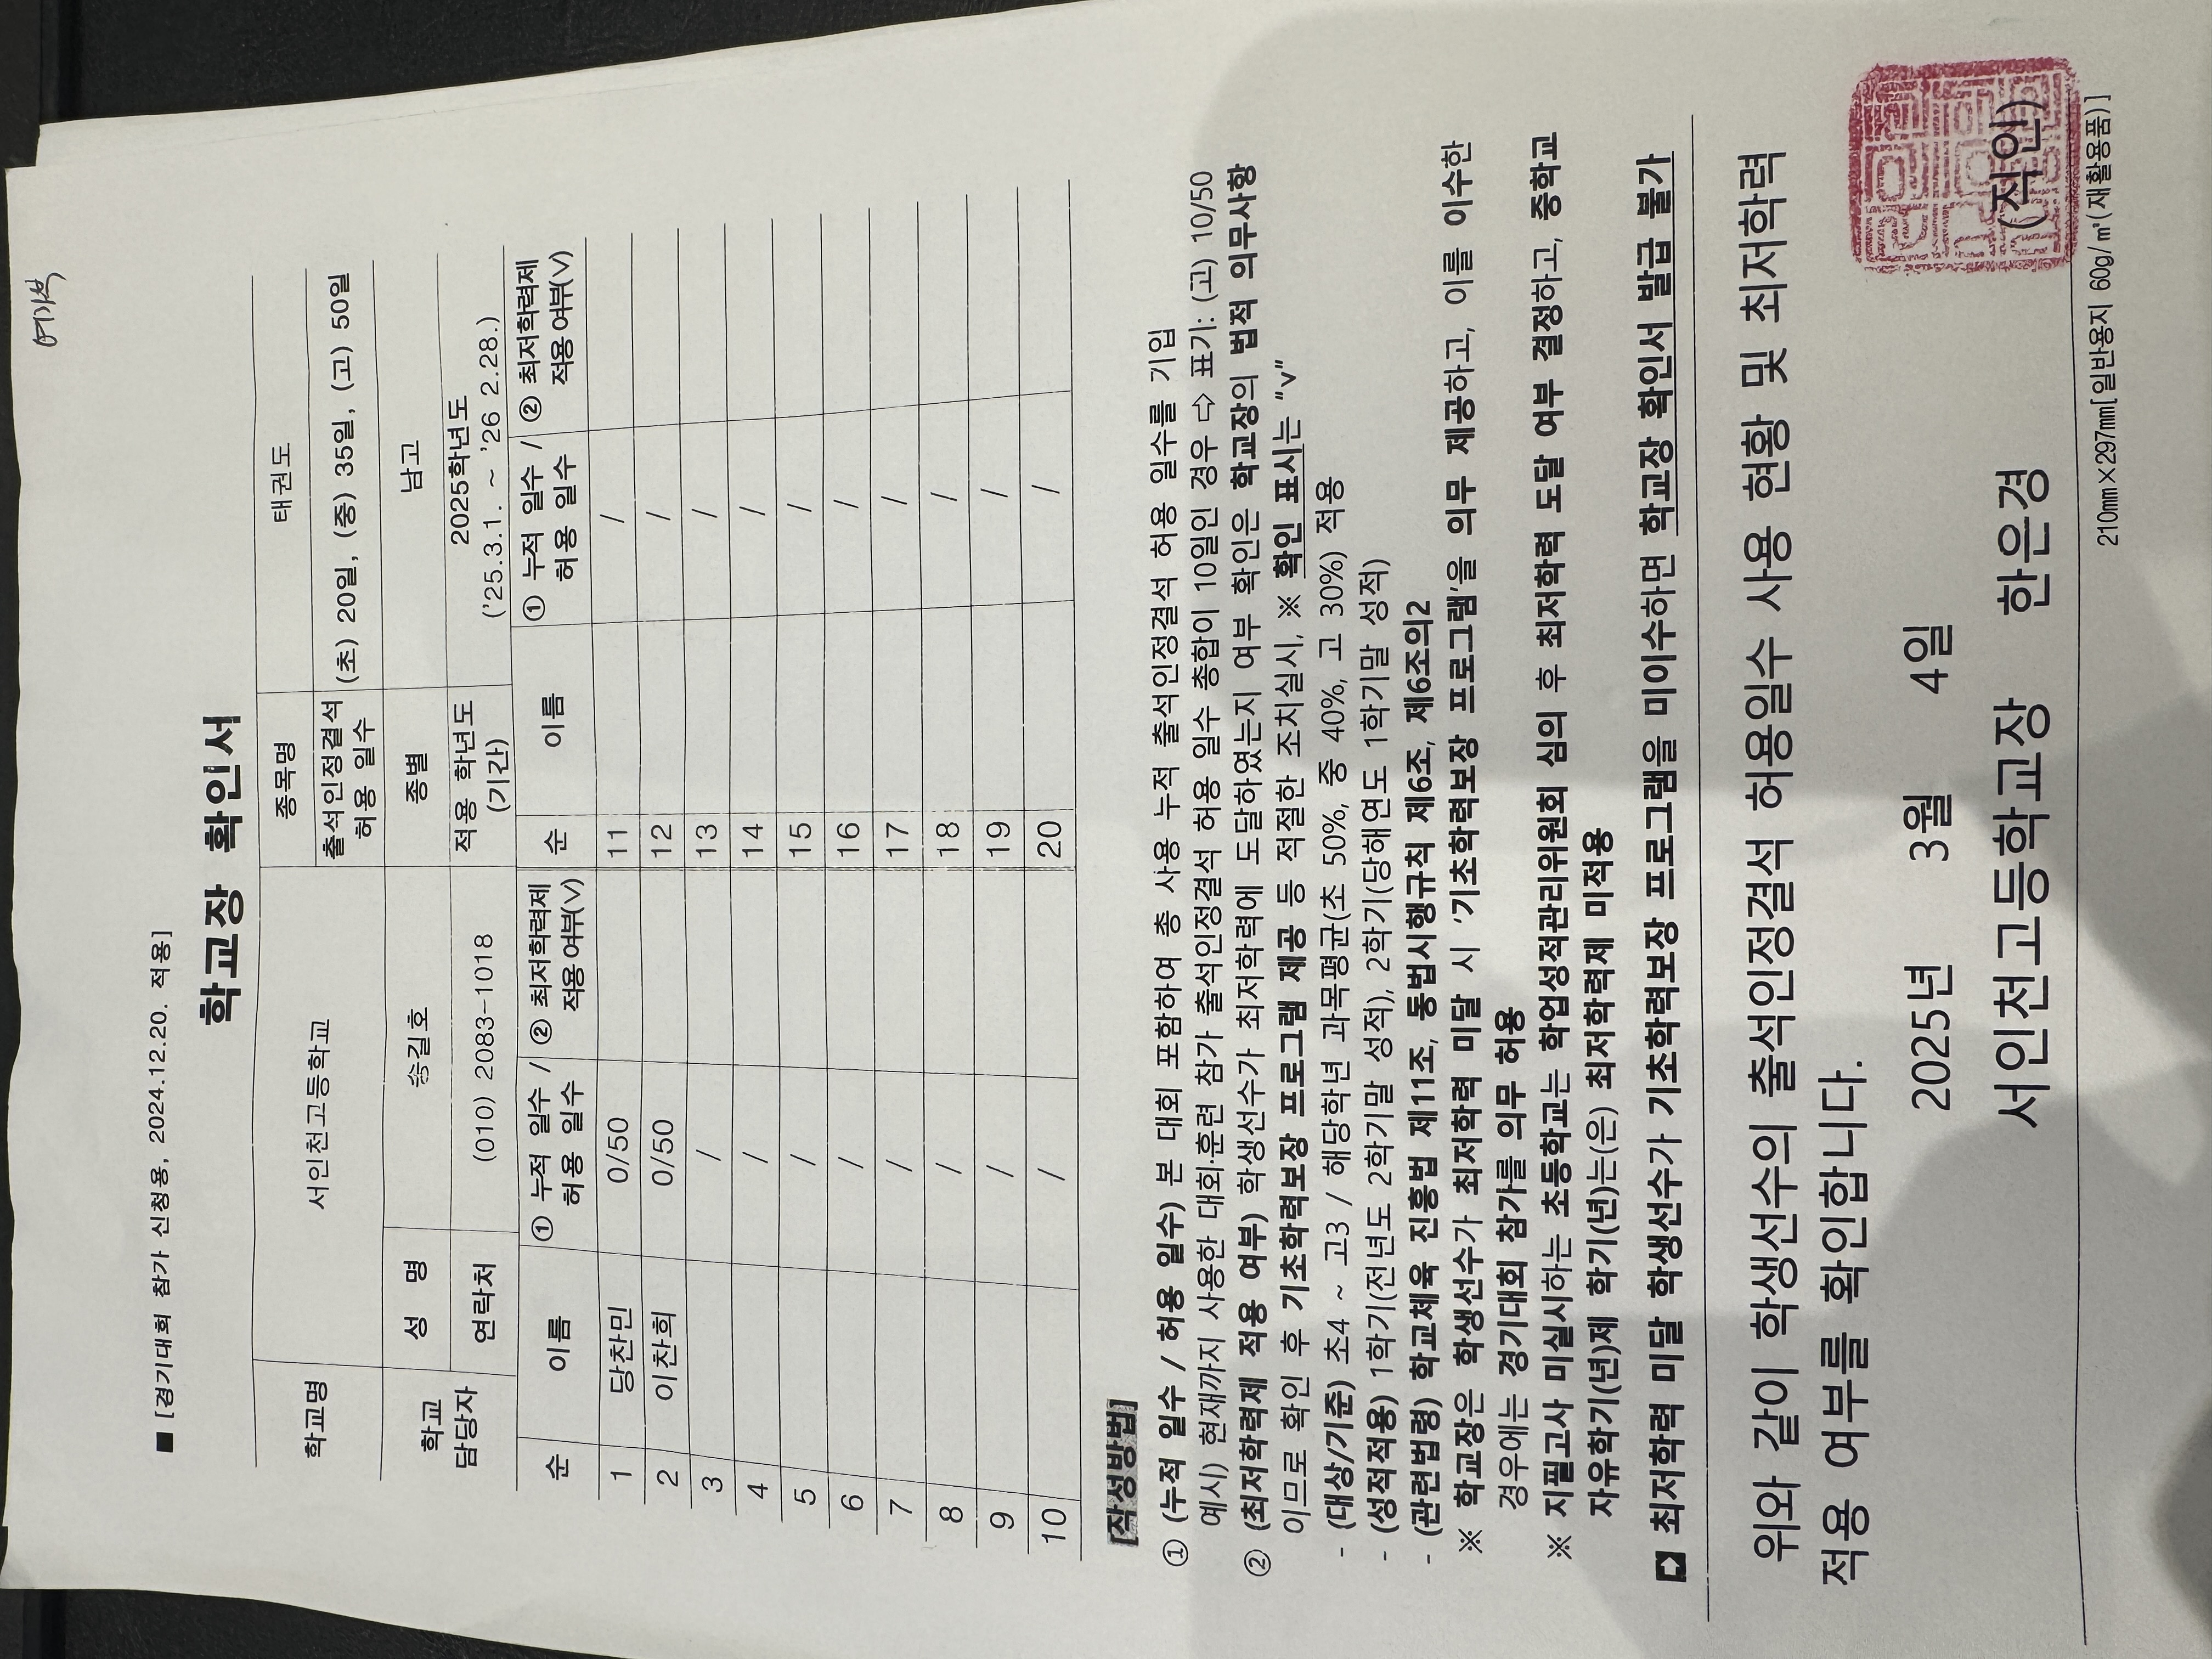 ■ [경기대회 참가 신청용, 2024.12.20. 적용]
학교장 확인서
학교명 서인천고등학교 종목명 태권도
출석인정결석 허용 일수 (초) 20일, (중) 35일, (고) 50일
학교 담당자 성 명 송길호 종별 남고
연락처 (010) 2083-1018 적용 학년도 (기간) 2025학년도 ('25.3.1. ~ '26 2.28.)
순 이름 ① 누적 일수 / 허용 일수 ② 최저학력제 적용여부(V) 순 이름 ① 누적 일수 / 허용 일수 ② 최저학력제 적용여부(V)
1 당찬민 0/50 11 /
2 이찬희 0/50 12 /
3 / 13 /
4 / 14 /
5 / 15 /
6 / 16 /
7 / 17 /
8 / 18 /
9 / 19 /
10 / 20 /
[작성방법]
① (누적 일수 / 허용 일수) 본 대회 포함하여 총 사용 누적 출석인정결석 허용 일수를 기입
예시) 현재까지 사용한 대회·훈련 참가 출석인정결석 허용 일수 총합이 10일인 경우 ⇨ 표기: (고) 10/50
② (최저학력제 적용 여부) 학생선수가 최저학력에 도달하였는지 여부 확인은 학교장의 법적 의무사항
이므로 확인 후 기초학력보장 프로그램 제공 등 적절한 조치실시, ※ 확인 표시는 "v"
- (대상/기준) 초4 ~ 고3 / 해당학년 과목평균(초 50%, 중 40%, 고 30%) 적용
- (성적적용) 1학기(전년도 2학기말 성적), 2학기(당해연도 1학기말 성적)
- (관련법령) 학교체육 진흥법 제11조, 동법시행규칙 제6조, 제6조의2
※ 학교장은 학생선수가 최저학력 미달 시 '기초학력보장 프로그램'을 의무 제공하고, 이를 이수한
경우에는 경기대회 참가를 의무 허용
※ 지필고사 미실시하는 초등학교는 학업성적관리위원회 심의 후 최저학력 도달 여부 결정하고, 중학교
자유학기(년)제 학기(년)는(은) 최저학력제 미적용
최저학력 미달 학생선수가 기초학력보장 프로그램을 미이수하면 학교장 확인서 발급 불가
위와 같이 학생선수의 출석인정결석 허용일수 사용 현황 및 최저학력
적용 여부를 확인합니다.
2025년 3월 4일
서인천고등학교장 한은경 (직인)
210㎜×297㎜[일반용지 60g/㎡(재활용품)]